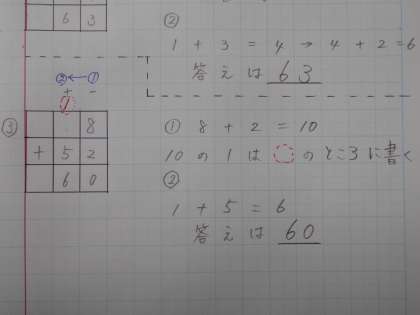 6 3
②
1 + 3 = 4 → 4 + 2 = 6
答えは 63
② ← ①
+ -
1
③
8
+ 5 2
6 0
① 8 + 2 = 10
10の1は◯のところに書く
②
1 + 5 = 6
答えは 60